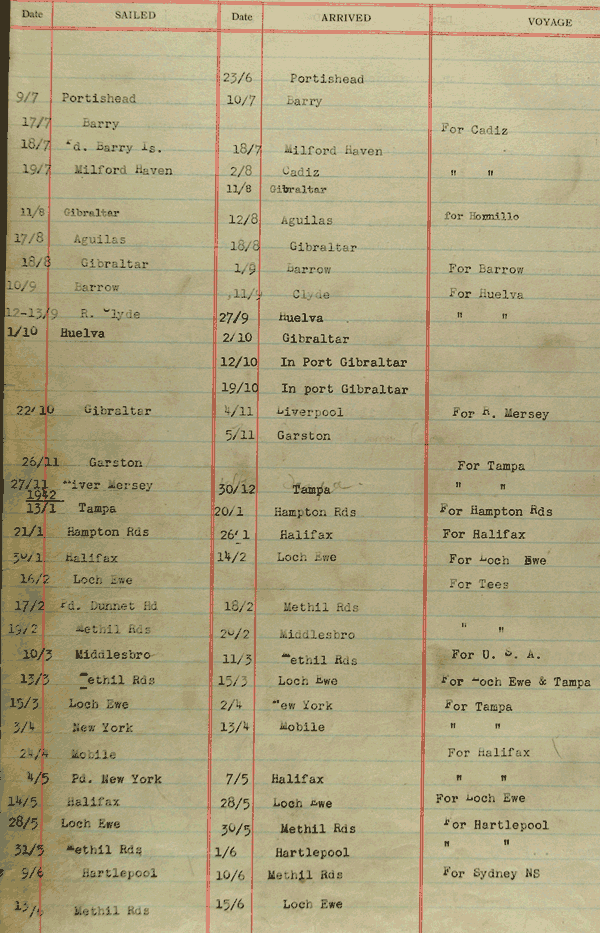 Date SAILED Date ARRIVED VOYAGE
23/6 Portishead
9/7 Portishead 10/7 Barry
17/7 Barry For Cadiz
18/7 Pd. Barry Is. 18/7 Milford Haven
19/7 Milford Haven 2/8 Cadiz " "
11/8 Gibraltar
11/8 Gibraltar 12/8 Aguilas for Hornillo
17/8 Aguilas 18/8 Gibraltar
18/8 Gibraltar 1/9 Barrow For Barrow
10/9 Barrow 11/9 Clyde For Huelva
12-13/9 R. Clyde 27/9 Huelva " "
1/10 Huelva 2/10 Gibraltar
12/10 In Port Gibraltar
19/10 In port Gibraltar
22/10 Gibraltar 4/11 Liverpool For R. Mersey
5/11 Garston
26/11 Garston For Tampa
27/11 River Mersey 30/12 Tampa " "
1942
13/1 Tampa 20/1 Hampton Rds For Hampton Rds
21/1 Hampton Rds 26/1 Halifax For Halifax
30/1 Halifax 14/2 Loch Ewe For Loch Ewe
16/2 Loch Ewe For Tees
17/2 Pd. Dunnet Hd 18/2 Methil Rds
19/2 Methil Rds 20/2 Middlesbro " "
10/3 Middlesbro 11/3 Methil Rds For U. S. A.
13/3 Methil Rds 15/3 Loch Ewe For Loch Ewe & Tampa
15/3 Loch Ewe 2/4 New York For Tampa
3/4 New York 13/4 Mobile " "
Mobile For Halifax
4/5 Pd. New York 7/5 Halifax " "
14/5 Halifax 28/5 Loch Ewe For Loch Ewe
28/5 Loch Ewe 30/5 Methil Rds For Hartlepool
31/5 Methil Rds 1/6 Hartlepool " "
9/6 Hartlepool 10/6 Methil Rds For Sydney NS
13/6 Methil Rds 15/6 Loch Ewe